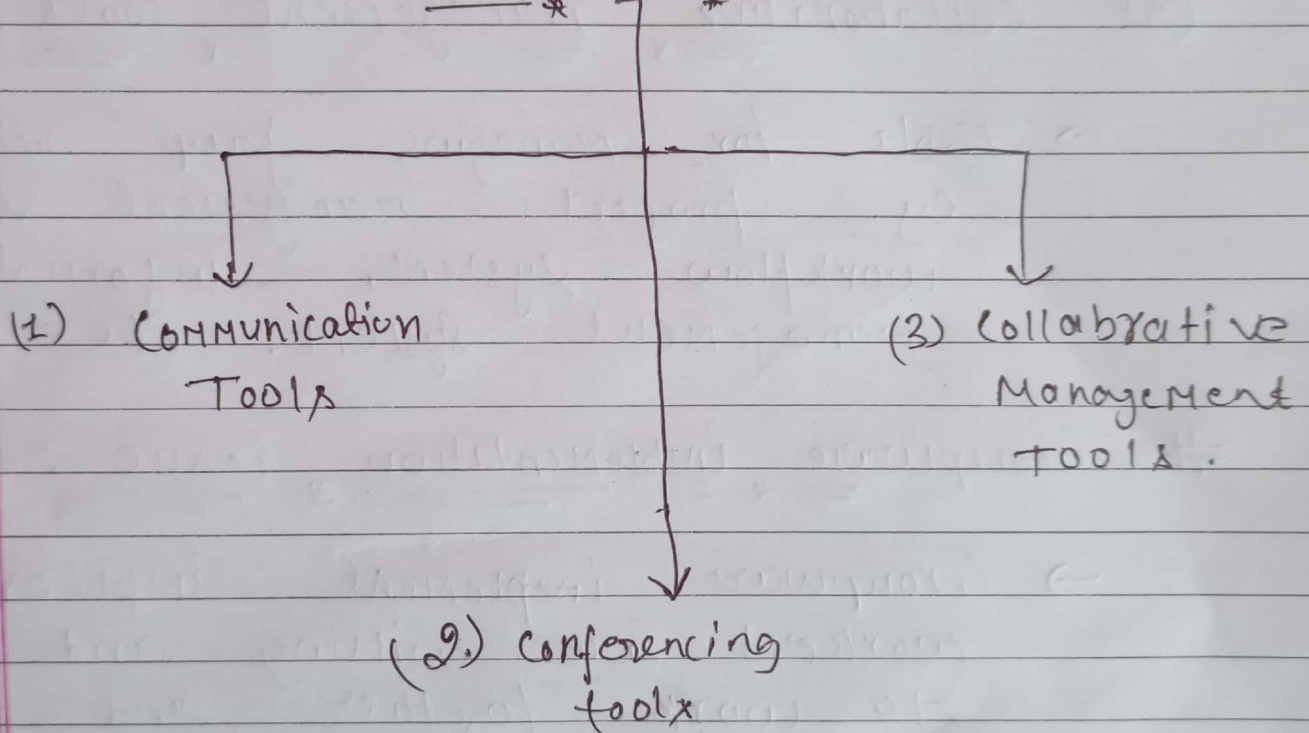 (1) Communication
Tools
(3) Collabrative
Management
Tools.
(2.) Conferencing
tools